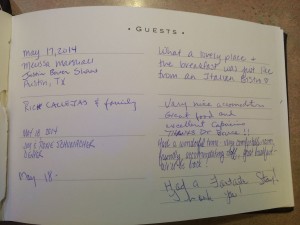 • GUESTS •
May 17, 2014
Melissa Marshall
Austin, TX
What a lovely place +
the breakfast was just like
from an Italian Bistro!
RICH CALLEJAS & family
Very nice accomodations
Great food and
excellent Cappuccino
May 18, 2014
Had a wonderful time - very comfortable room,
friendly, accommodating staff, great breakfast -
May 18 -
Had a Fantastic Stay!
Thank you!